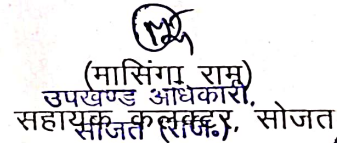 (मासिंगा राम)
उपखण्ड अधिकारी,
सहायक कलक्टर, सोजत
सोजत (राज.)